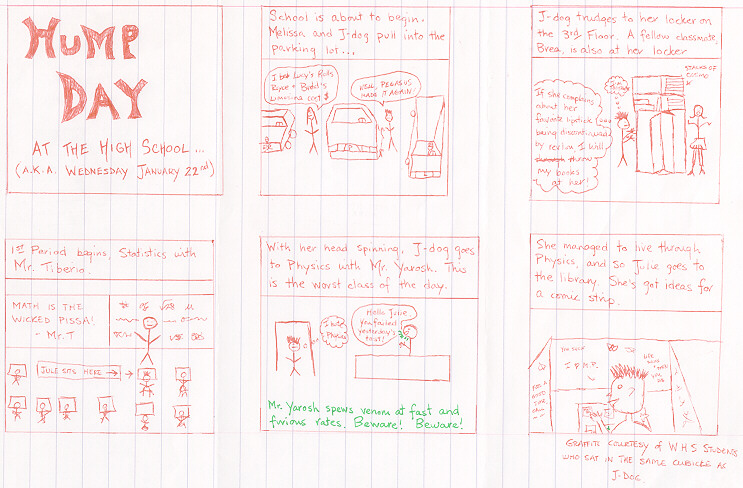 HUMP
DAY
AT THE HIGH SCHOOL...
(A.K.A. WEDNESDAY JANUARY 22nd)
School is about to begin.
Melissa and J-dog pull into the
parking lot...
I bet Lucy's Rolls
Royce + Budd's
limo cost $
WELL, PEGASUS
MADE IT AGAIN!
J-dog trudges to her locker on
the 3rd Floor. A fellow classmate,
Brea, is also at her locker
STACKS OF
COSMO
If she complains
about her
favorite lipstick
being discontinued
by revlon, I will
throw
my books
at her!
1st Period begins, Statistics with
Mr. Tiberio.
MATH IS THE
WICKED PISSA!
- Mr. T
JULIE SITS HERE →
With her head spinning, J-dog goes
to Physics with Mr. Yarosh. This
is the worst class of the day.
I hate
Physics
Hello Julie
you failed
yesterday's
test!
Mr. Yarosh spews venom at fast and
furious rates. Beware! Beware!
She managed to live through
Physics, and so Julie goes to
the library. She's got ideas for
a comic strip.
FOR A
GOOD
TIME
GRAFFITI COURTESY OF WHS STUDENTS
WHO SAT IN THE SAME CUBICLE AS
J-DOG